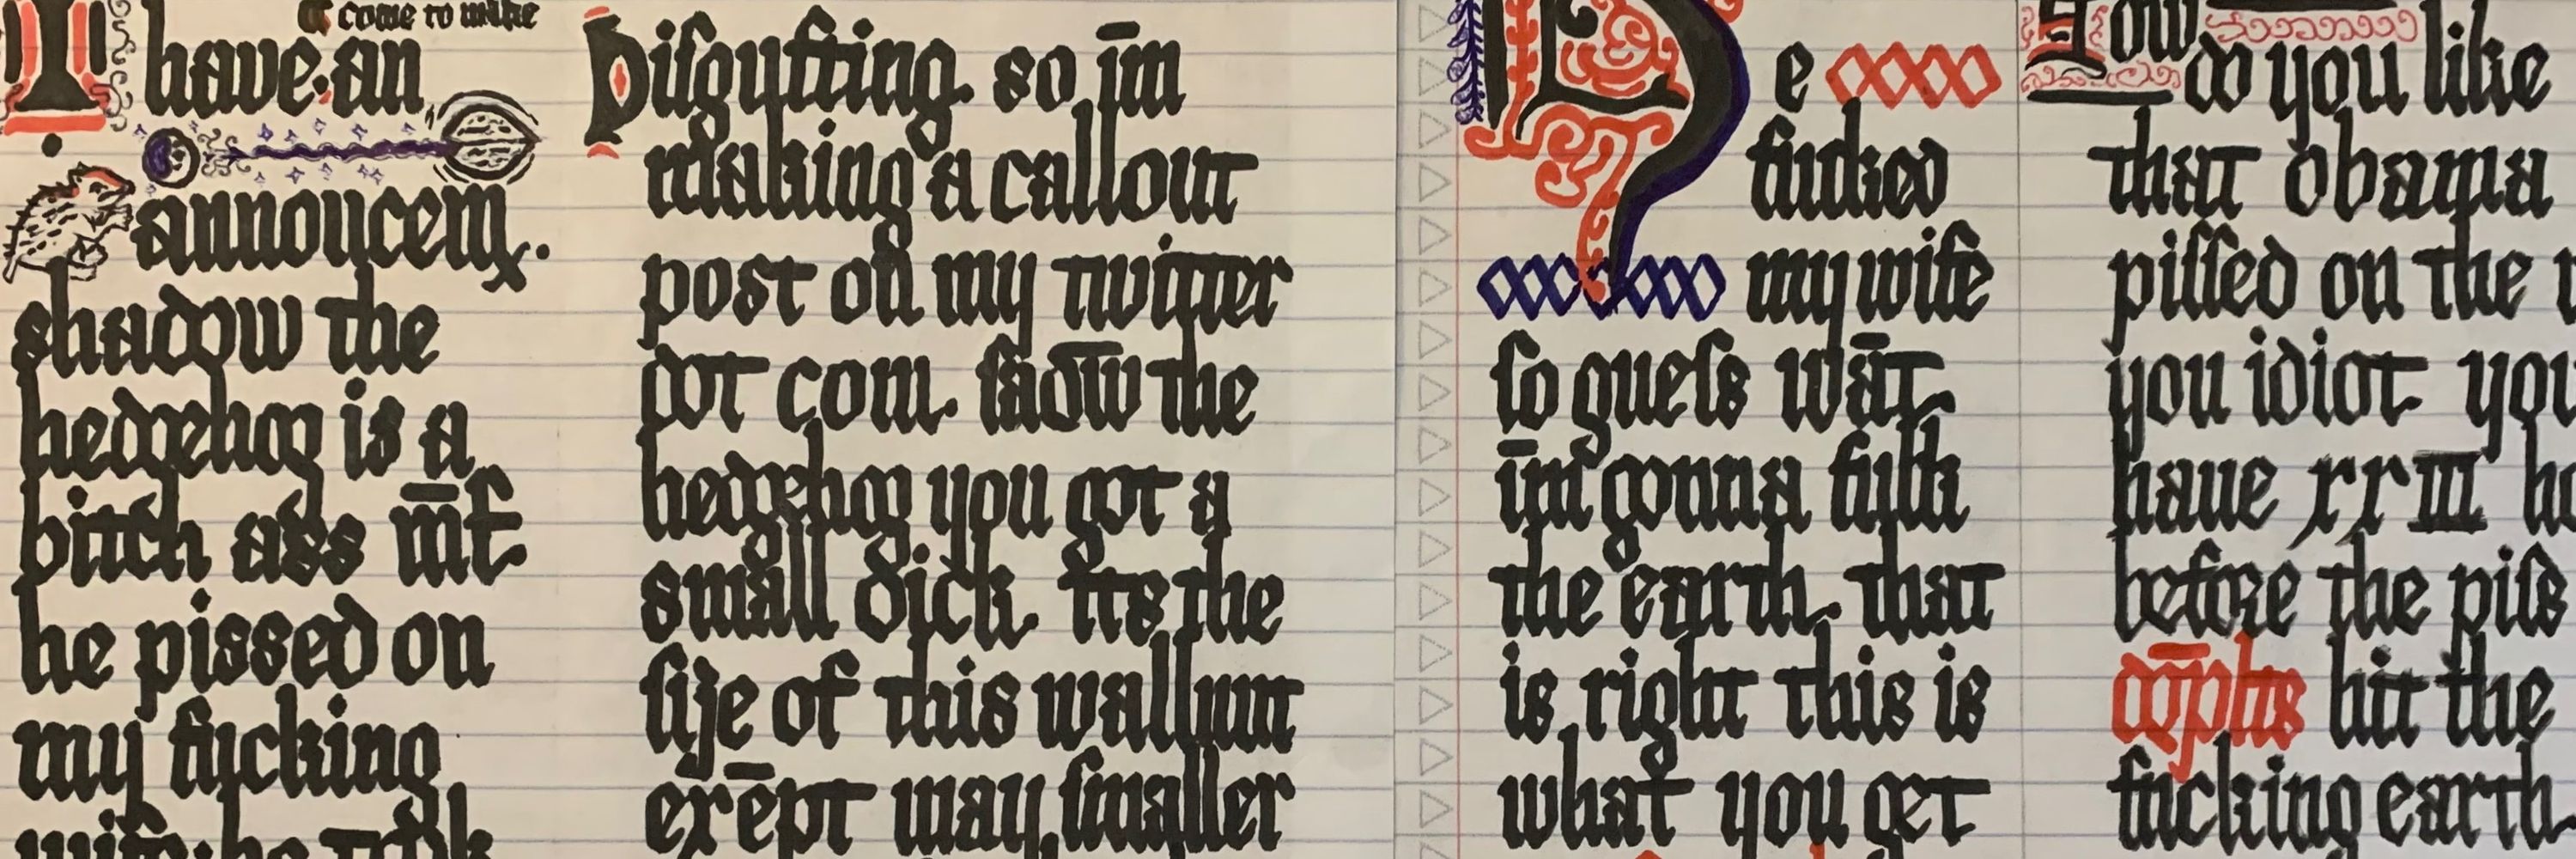 I come to make
have an
annoucem.
shadow the
hedgehog is a
bitch ass m̄f.
he pissed on
my fucking
wife. he took
Diſguſting. so īm
making a callout
post on my twitter
dot com. ſadōw the
hedgehog you got a
small dick. its the
ſize of this wallnut
exēpt way ſmaller
He
fucked
my wife
ſo gueſs wāt.
īm gonna fuck
the earth. that
is right this is
what you get
How do you like
that obama
piſſed on the
you idiot you
have xxIII
before the piſs
hit the
fucking earth.